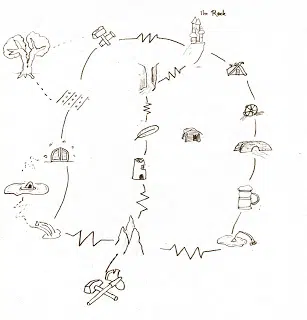 The Rock